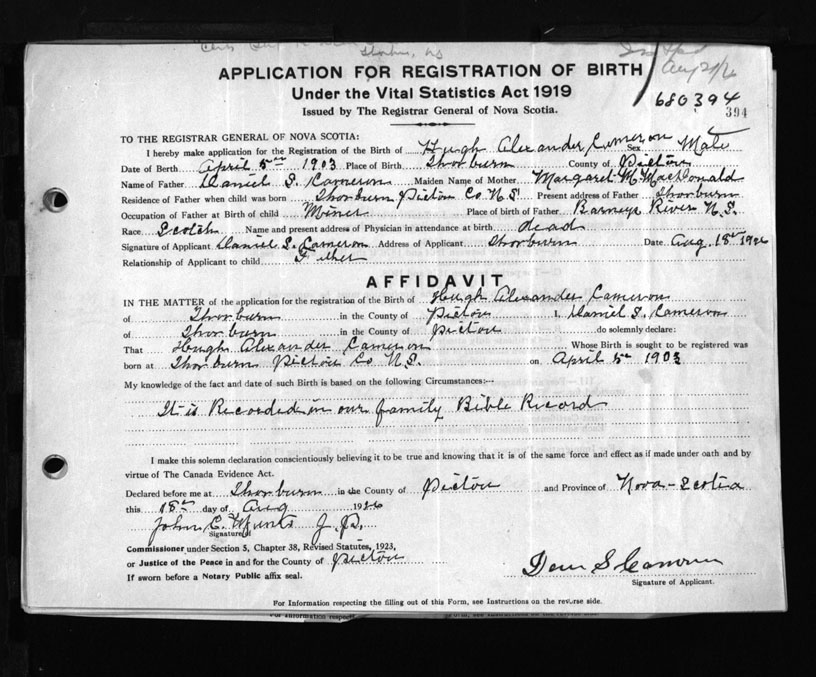 Thorburn, NS
APPLICATION FOR REGISTRATION OF BIRTH
Under the Vital Statistics Act 1919
Issued by The Registrar General of Nova Scotia.
680394
394
TO THE REGISTRAR GENERAL OF NOVA SCOTIA:
I hereby make application for the Registration of the Birth of Hugh Alexander Cameron Sex Male
Date of Birth April 5th 1903 Place of Birth Thorburn County of Pictou
Name of Father Daniel S. Cameron Maiden Name of Mother Margaret M. MacDonald
Residence of Father when child was born Thorburn Pictou Co N.S. Present address of Father Thorburn
Occupation of Father at Birth of child Miner Place of birth of Father Barneys River N.S.
Race Scotch Name and present address of Physician in attendance at birth dead
Signature of Applicant Daniel S. Cameron Address of Applicant Thorburn Date Aug. 18th 1926
Relationship of Applicant to child Father
AFFIDAVIT
IN THE MATTER of the application for the registration of the Birth of Hugh Alexander Cameron
of Thorburn in the County of Pictou I, Daniel S. Cameron
of Thorburn in the County of Pictou do solemnly declare:
That Hugh Alexander Cameron Whose Birth is sought to be registered was
born at Thorburn Pictou Co N.S. on April 5th 1903
My knowledge of the fact and date of such Birth is based on the following Circumstances:—
It is Recorded in our family Bible Record
I make this solemn declaration conscientiously believing it to be true and knowing that it is of the same force and effect as if made under oath and by
virtue of The Canada Evidence Act.
Declared before me at Thorburn in the County of Pictou and Province of Nova-Scotia
this 18th day of Aug 1926
John C. J.P.
Signature of
Commissioner under Section 5, Chapter 38, Revised Statutes, 1923,
or Justice of the Peace in and for the County of Pictou
If sworn before a Notary Public affix seal.
Dan S Cameron
Signature of Applicant.
For Information respecting the filling out of this Form, see Instructions on the reverse side.